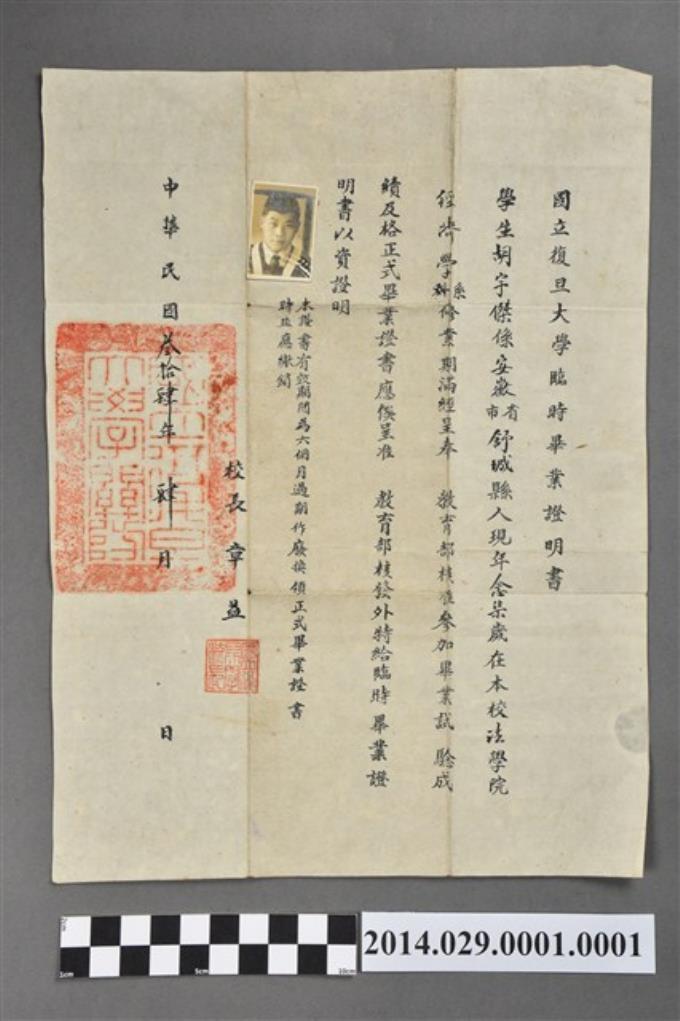 國立復旦大學臨時畢業證明書
學生胡宇傑係安徽省市舒城縣人現年念柒歲在本校法學院
經濟學系科修業期滿經呈奉 教育部核准參加畢業試驗成
績及格正式畢業證書應俟呈准 教育部核發外特給臨時畢業證
明書以資證明
本證書有效期間為六個月過期作廢換領正式畢業證書
時並應繳銷
校長章益
中華民國叁拾肆年肆月 日
2cm
1cm
5cm
10cm
2014.029.0001.0001